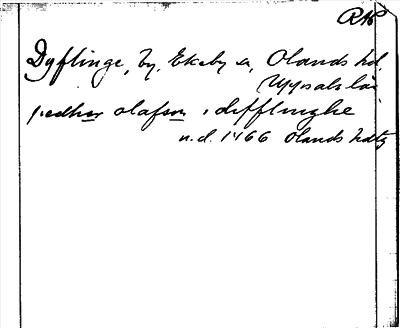 RAP
Dyflinge, by, Ekeby sn, Olands hd,
Uppsala län
pedher olafson i difflinghe
u.d. 1466 Olands hdtg